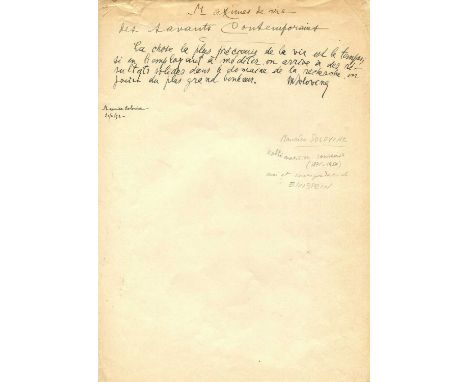 Maximes de vie
des Savants Contemporains
La chose la plus précieuse de la vie est le temps,
si en l'employant à méditer on arrive à des ré-
sultats solides dans le domaine de la recherche on
jouira du plus grand bonheur. M. Solovine
Maurice Solovine
Maurice SOLOVINE
mathématicien roumain
ami et correspondant de
EINSTEIN